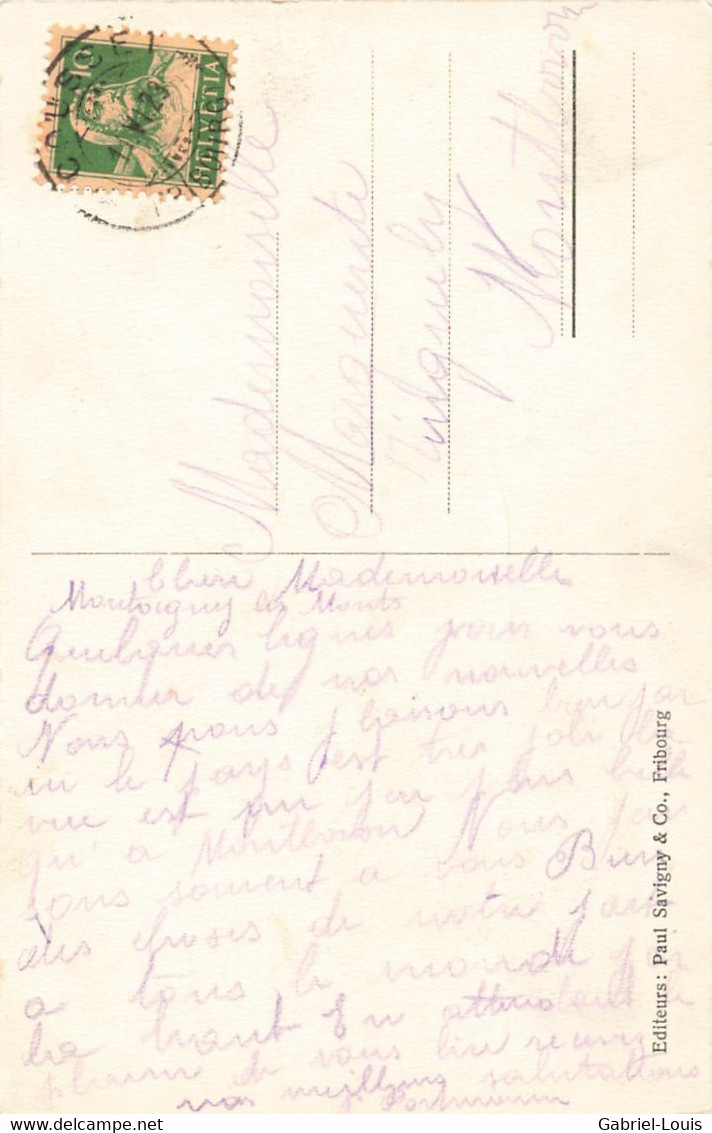 HELVETIA
10
COUSSET
FRIBOURG
VI.23
Mademoiselle
Marguerite
Tinguely
Montbovon
Chère Mademoiselle
Montagny les Monts
Quelques lignes pour vous
donner de nos nouvelles
Nous nous plaisons bien par
le pays est très joli la
vue est un peu plus belle
qu'a Montbovon Nous pen
sons souvent a vous Bien
des choses de notre part
a tous le monde par
la haut En attendant le
plaisir de vous lire recevez
nos meilleurs salutations
Editeurs: Paul Savigny & Co., Fribourg
Gabriel-Louis